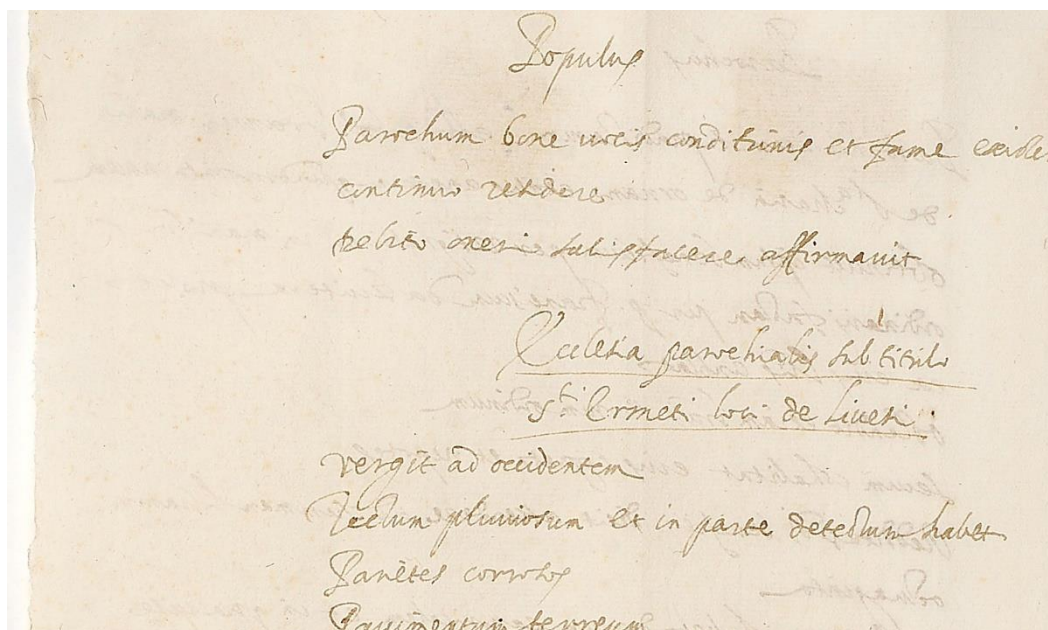 Populus
Parochum bone vocis conditionis et fame
continuo residere
debito oneri satisfacere affirmavit
Ecclesia parochialis sub titulo
S.ti Ermeti loci de Liveti
vergit ad occidentem
Tectum pluviosum et in parte detectum habet
Parietes corrosos
Pavimentum terreum